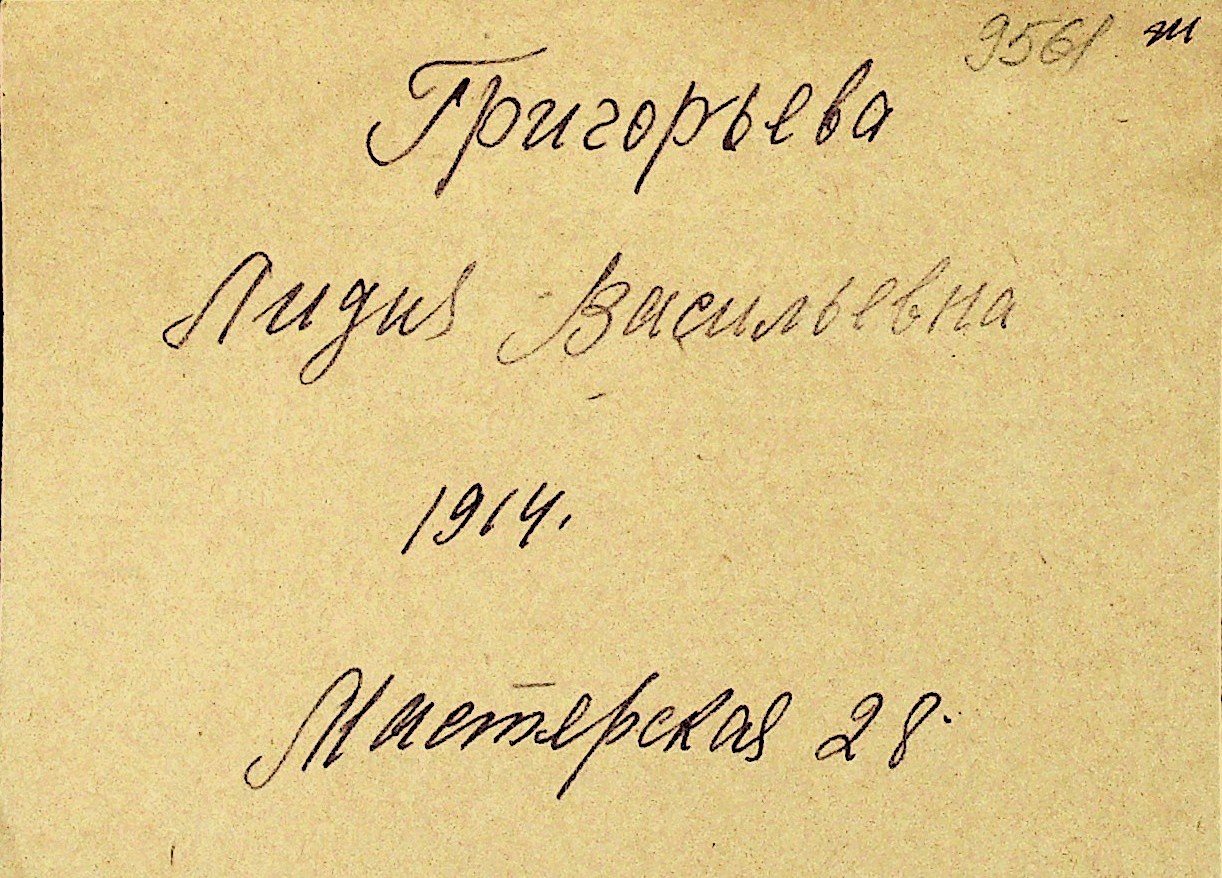 9561 т
Григорьева
Лидия Васильевна
1914.
Мастерская 28.